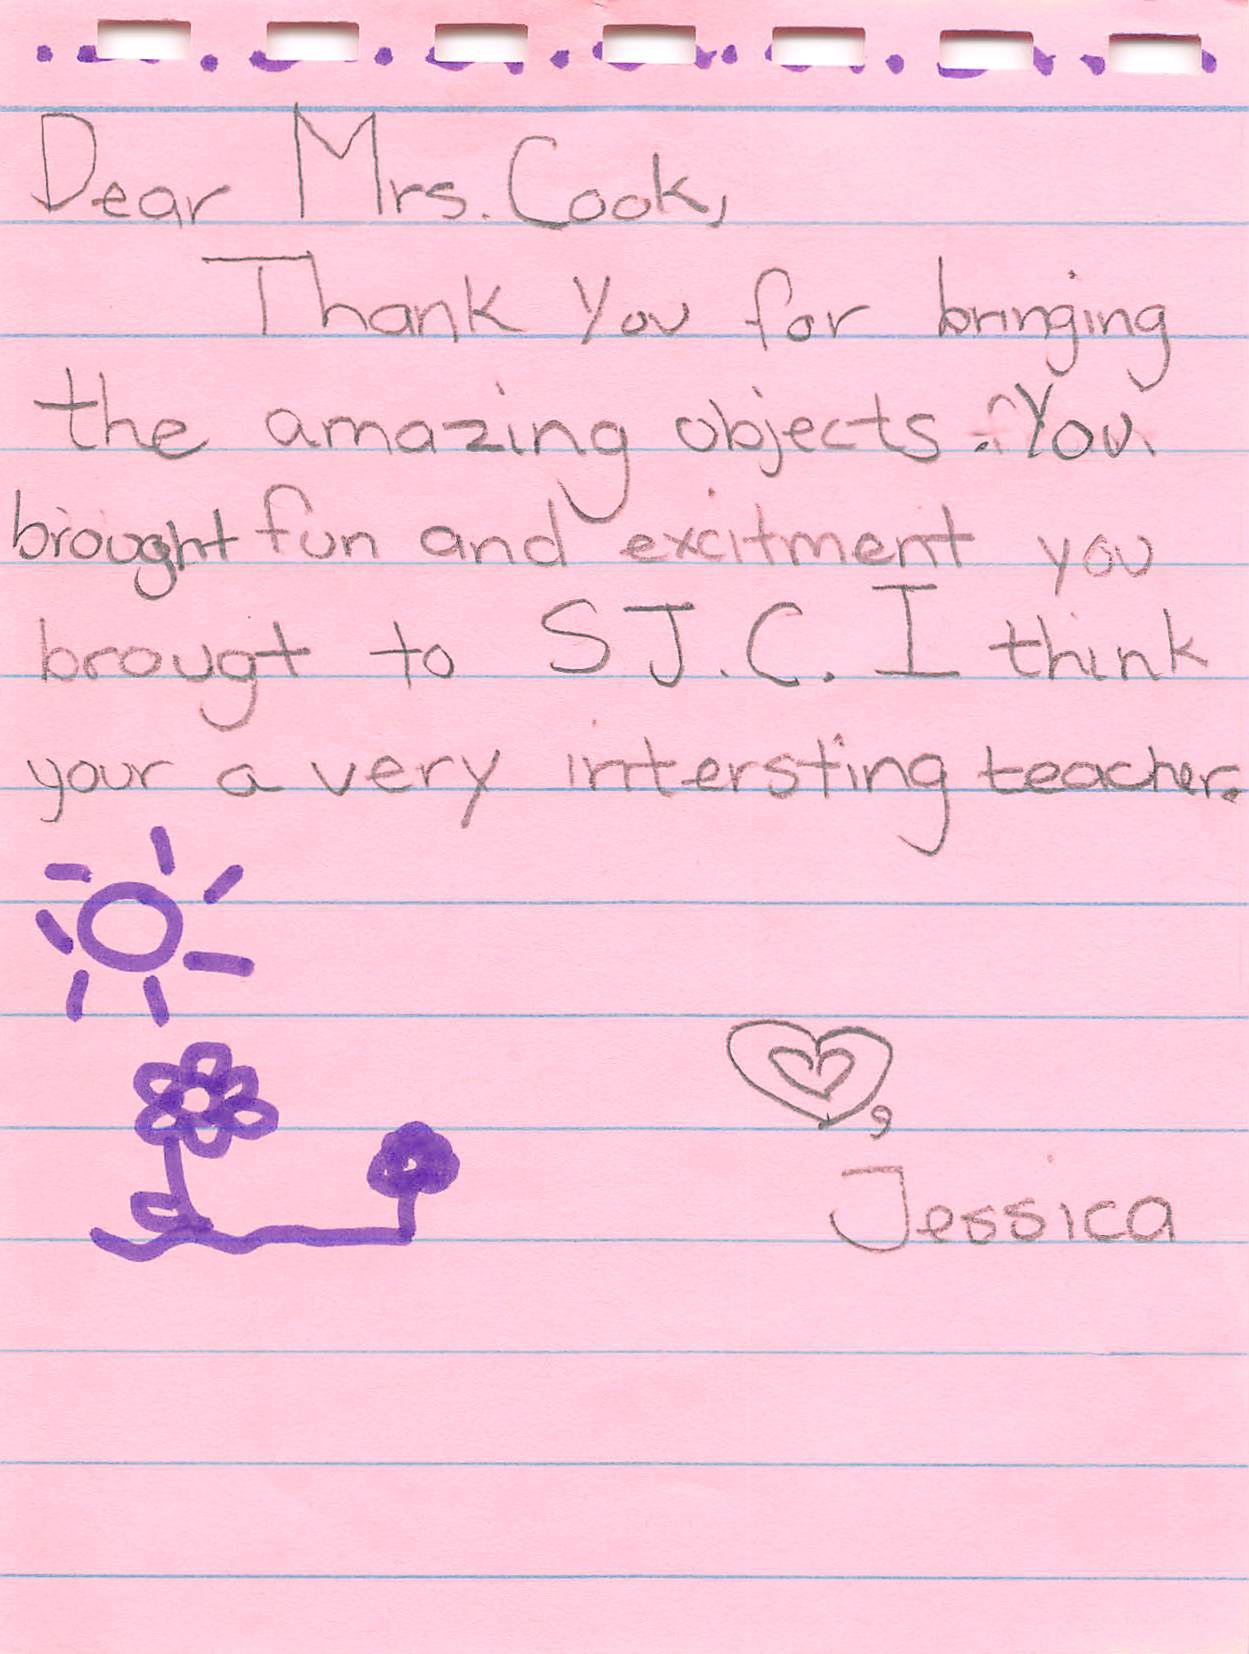 Dear Mrs. Cook,
Thank you for bringing
the amazing objects. You
brought fun and excitment you
brougt to SJ.C. I think
your a very intersting teacher.
,
Jessica